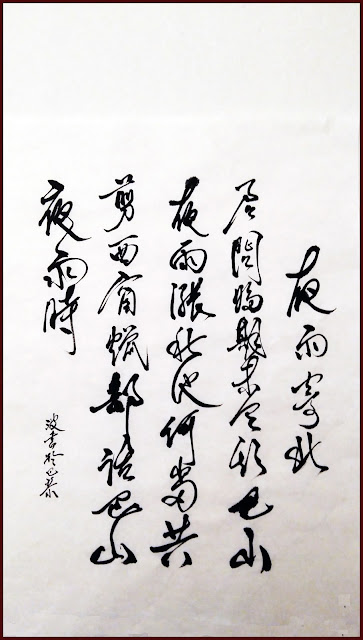 夜雨寄北
君問歸期未有期巴山
夜雨漲秋池何當共
剪西窗燭卻話巴山
夜雨時
波書於巴黎